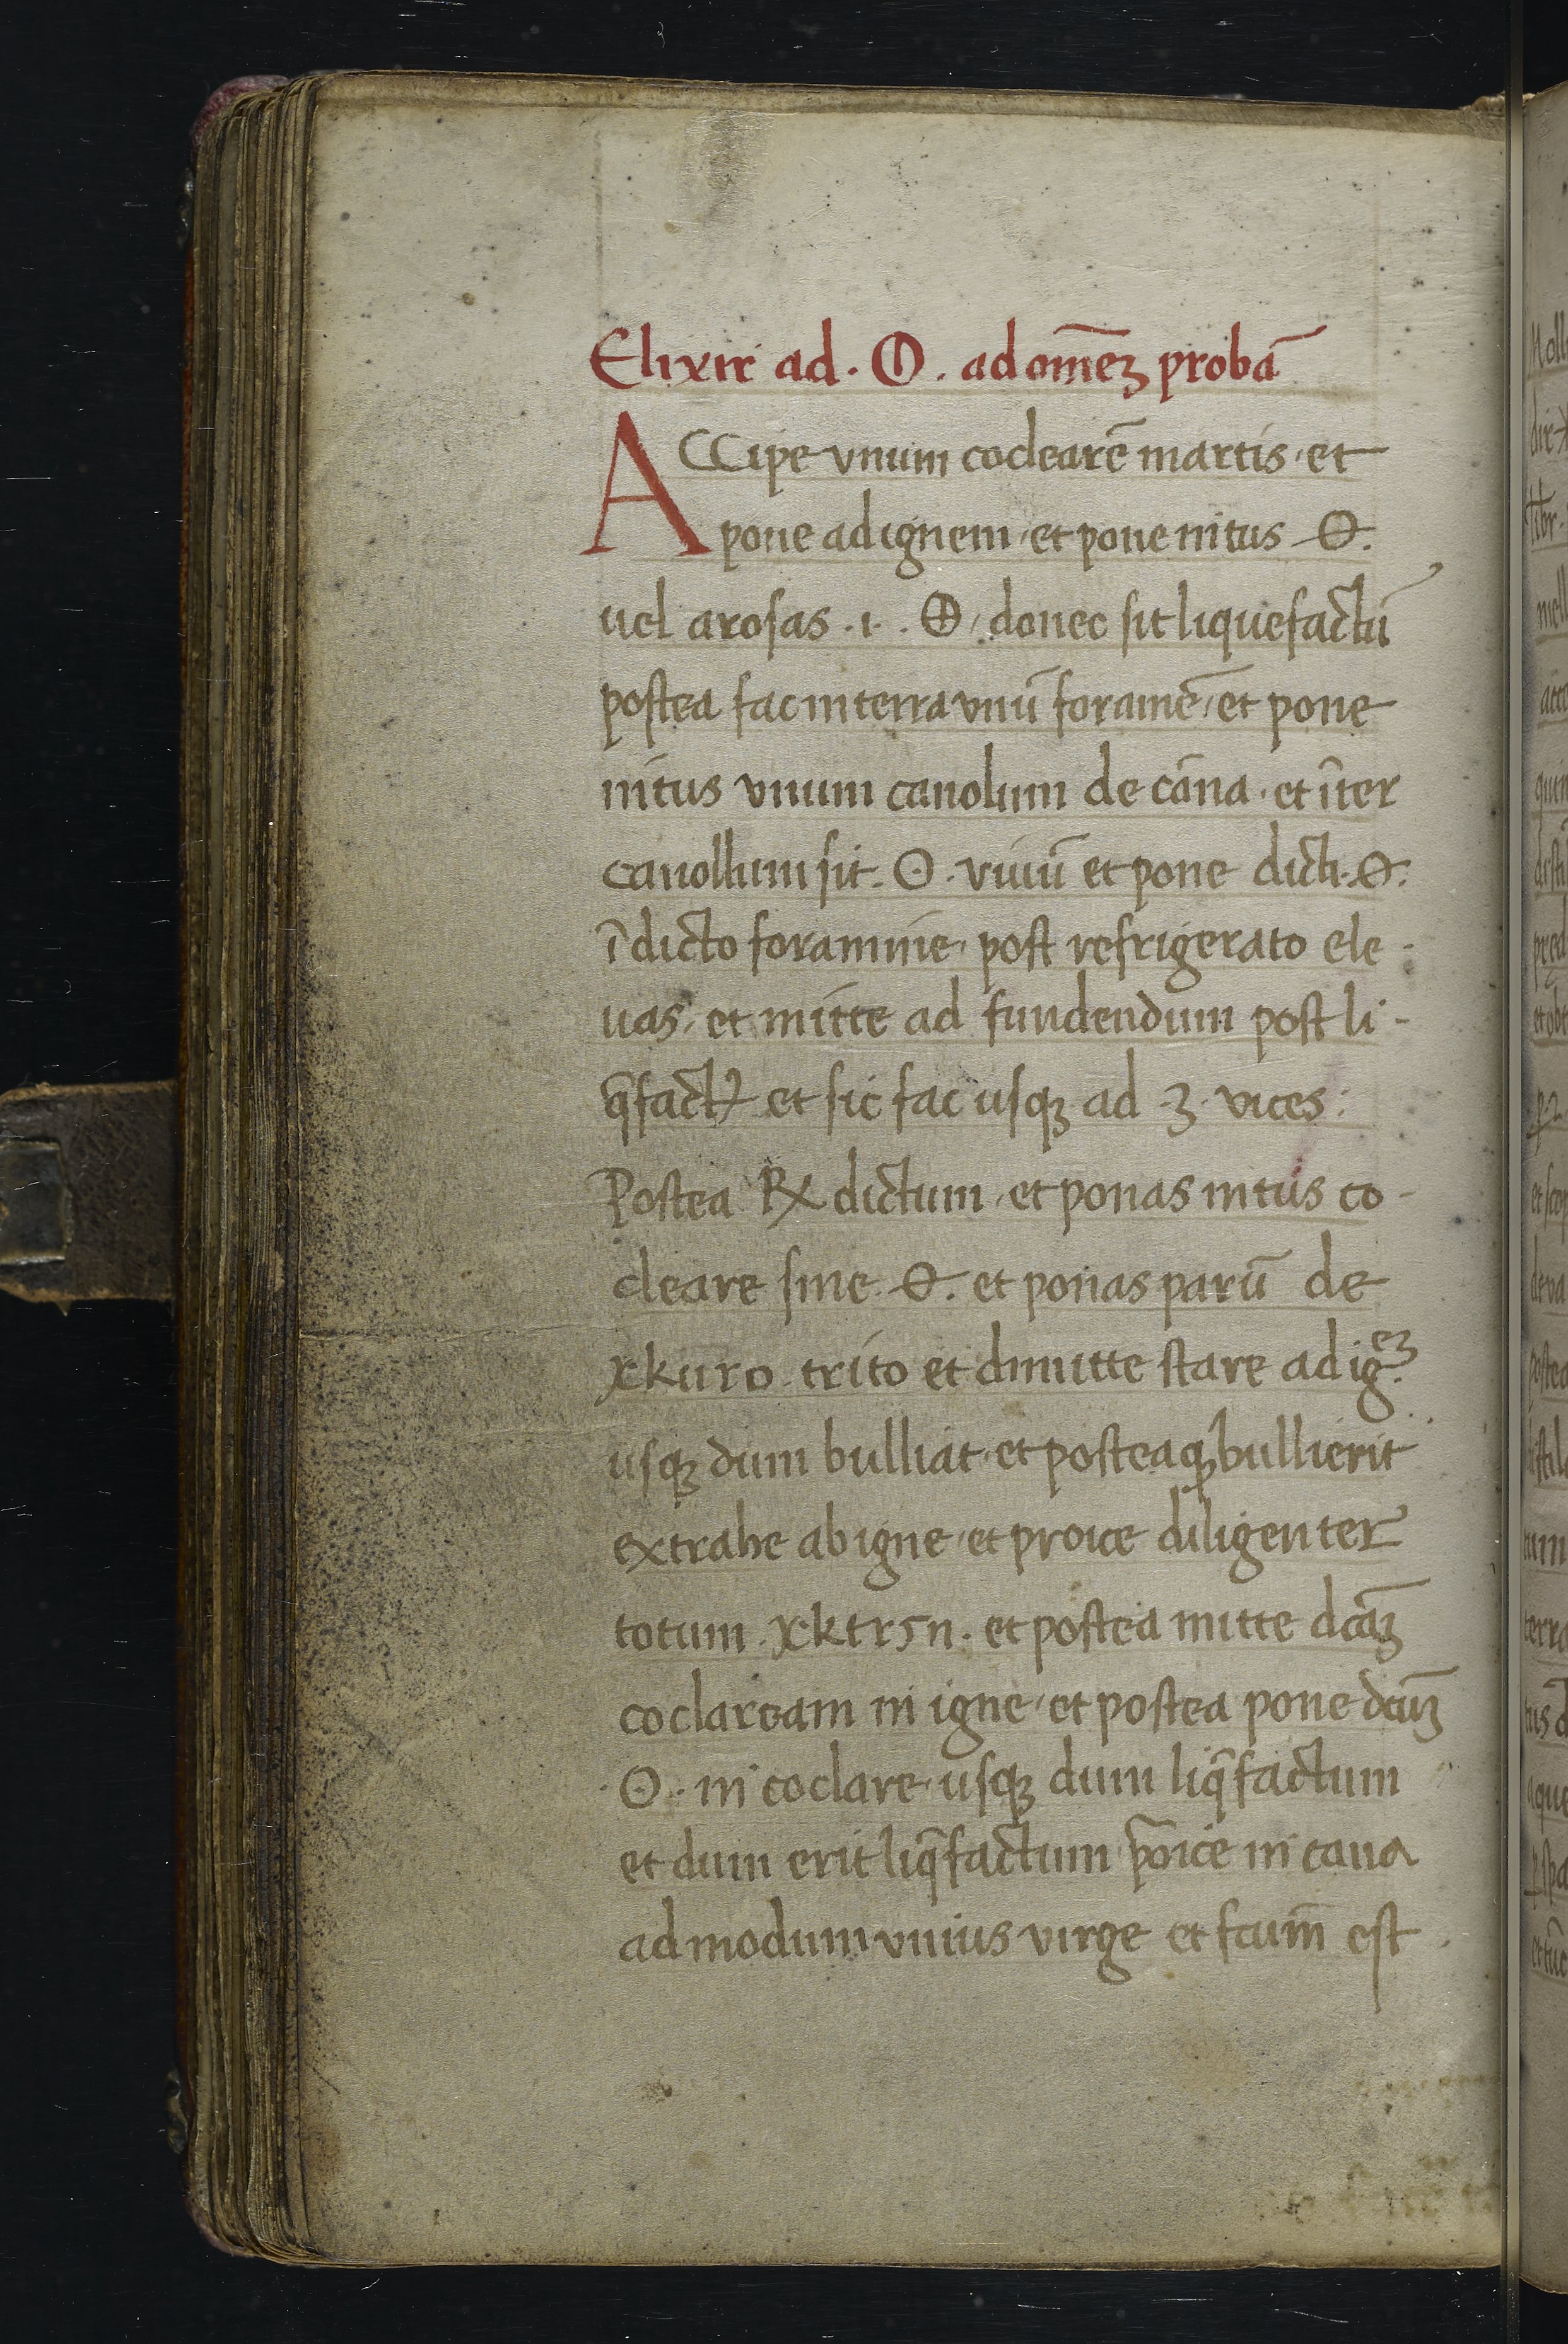 Elixir ad . ⦶ . ad om̄eꝫ probā
ACCipe vnum coclearē martis · et
pone ad ignem · et pone intus ꝋ.
uel arosas .1. ⊕ · donec sit liquefactū
postea fac in terra vnū foramē · et pone
intus vnum canolum de cāna · et īter
canollum sit. ☉ . viuū et pone dicti . ꝋ.
ī dicto foramine · post refrigerato ele -
uas · et mitte ad fundendum post li -
q̄fact et sic fac usqꝫ ad 3 · vices :
Postea ℞ dictum · et ponas intus co -
cleare sine ꝋ . et ponas parū de
xkuro trito et dimitte stare ad ig.eꝫ
usqꝫ dum bulliat · et posteaqꝫ bullierit
extrahe ab igne · et proice diligenter
totum . xktr5n . et postea mitte dcāꝫ
coclaream in igne · et postea pone dcūꝫ
· ☉ · in coclare · usqꝫ dum liq̄factum
et dum erit liq̄factum p̄oice in caua
ad modum vnius virge et fcum̄ est .